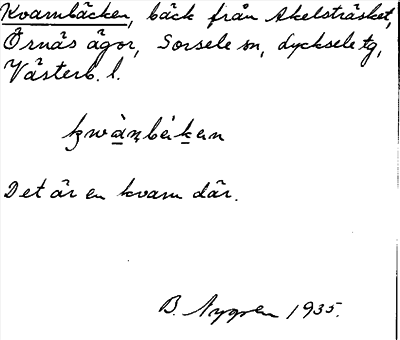 Kvarnbäcken, bäck från Akelsträsket,
Örnäs ägor, Sorsele sn, Lycksele tg,
Västerb. l.
kwàṇbèken
Det är en kvarn där.
B. Nygren 1935.